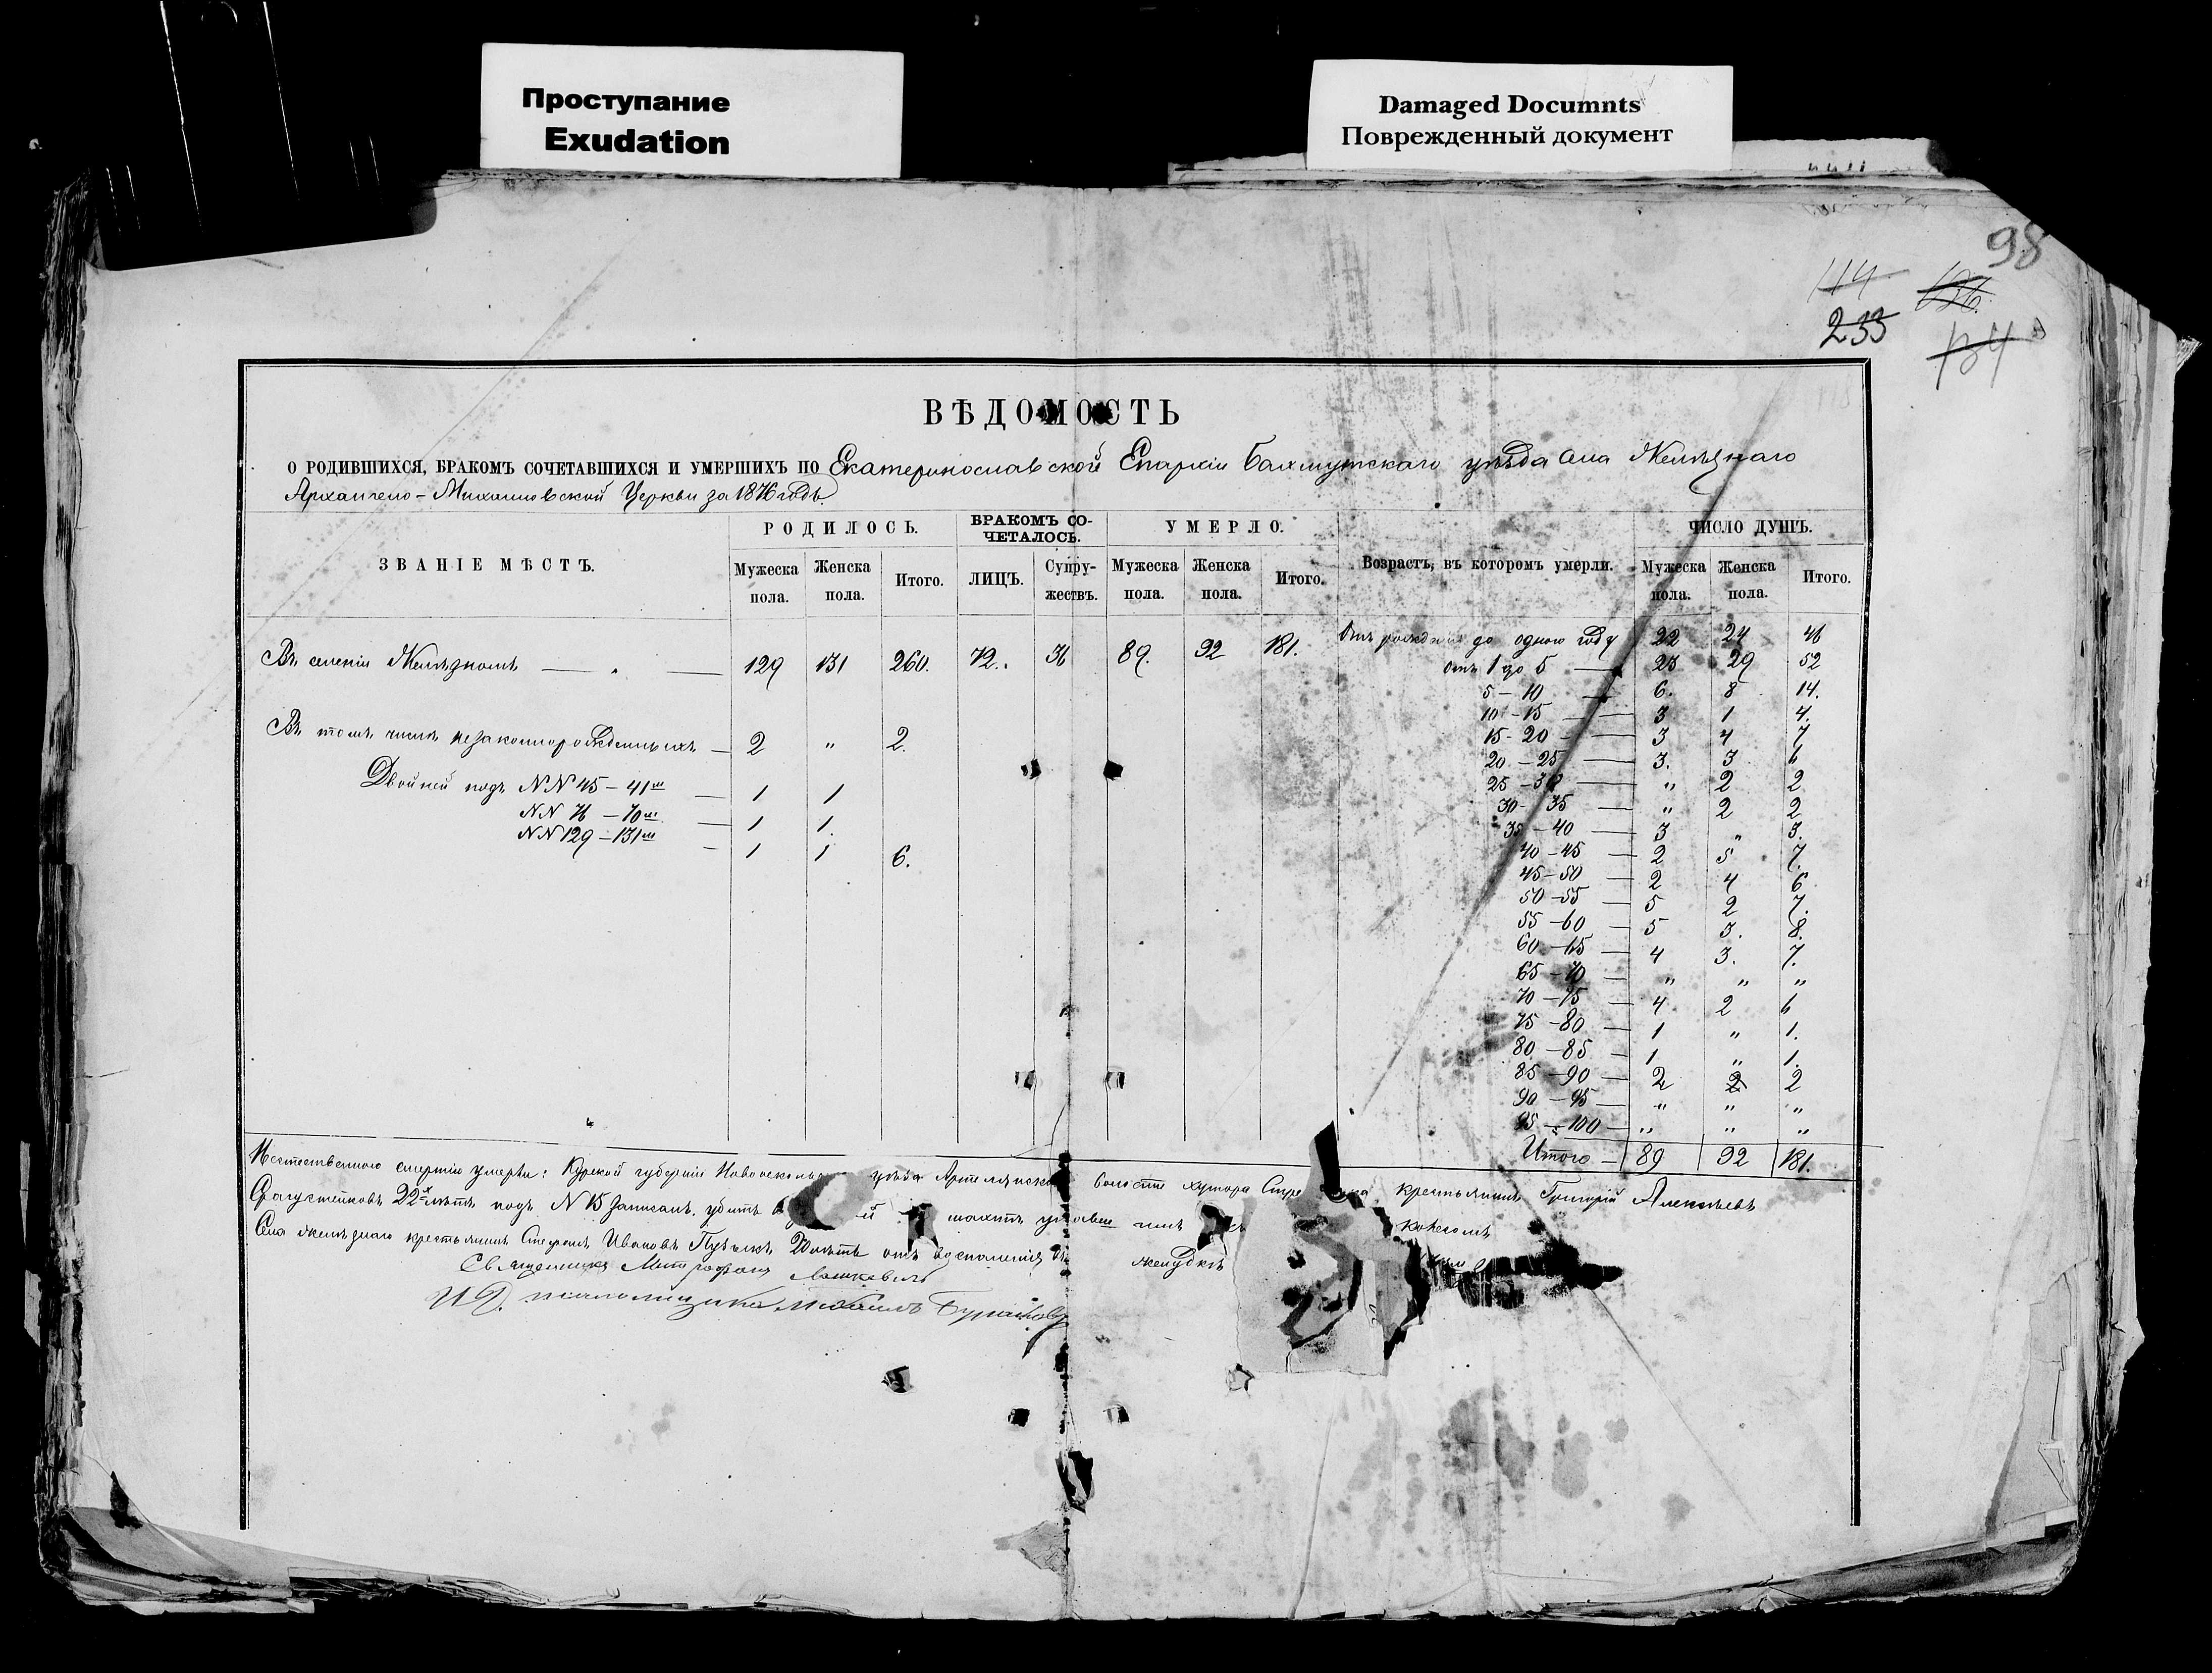 Проступание
Exudation
Damaged Documnts
Поврежденный документ
98
114
136.
233
134
ВѢДОМОСТЬ
О РОДИВШИХСЯ, БРАКОМЪ СОЧЕТАВШИХСЯ И УМЕРШИХЪ ПО Екатеринославской Епархіи Бахмутскаго уѣзда села Желѣзнаго
Архангело-Михайловской Церкви за 1876 годъ
ЗВАНІЕ МѢСТЪ. РОДИЛОСЬ. БРАКОМЪ СО-ЧЕТАЛОСЬ. УМЕРЛО. Возрастъ, въ которомъ умерли. ЧИСЛО ДУШЪ.
Мужеска пола. Женска пола. Итого. ЛИЦЪ. Супру-жествъ. Мужеска пола. Женска пола. Итого. Мужеска пола. Женска пола. Итого.
Въ селеніи Желѣзномъ — „ — 129 131 260. 72. 36 89. 92 181. Отъ рожденія до одного году 22 24 46
отъ 1 до 5 — 23 29 52
5 — 10 — 6. 8 14.
10 — 15 — 3 1 4.
Въ томъ числѣ незаконнорожденныхъ — 2 „ 2. 15 - 20 — 3 4 7
20 — 25 — 3. 3 6
Двойней подъ NN 45 — 41 — 1 1 25 — 30 — „ 2 2
NN 76 — 70 — 1 1. 30 - 35 — „ 2 2
NN 129 — 131 — 1 1 6. 35 — 40 — 3 „ 3.
40 — 45 — 2 5 7.
45 — 50 — 2 4 6
50 — 55 — 5 2 7.
55 — 60 — 5 3. 8.
60 — 65 — 4 3. 7.
65 — 70 — „ „ „
70 — 75 — 4 2 6
75 — 80 — 1 „ 1.
80 — 85 — 1 „ 1.
85 — 90 — 2 2 2
90 — 95 — „ „ „
95 — 100 — „ „ „
Итого — 89 92 181.
смертію умерли: Курской губерніи уѣзда волости хутора крестьянинъ Григорій Алексѣевъ
22 лѣтъ подъ N 15 записанъ. убитъ шахтѣ
Села Желѣзнаго крестьянинъ Стефанъ Ивановъ отъ воспаленія въ желудкѣ
Священникъ Митрофанъ
И. Д. псаломщика Михаилъ